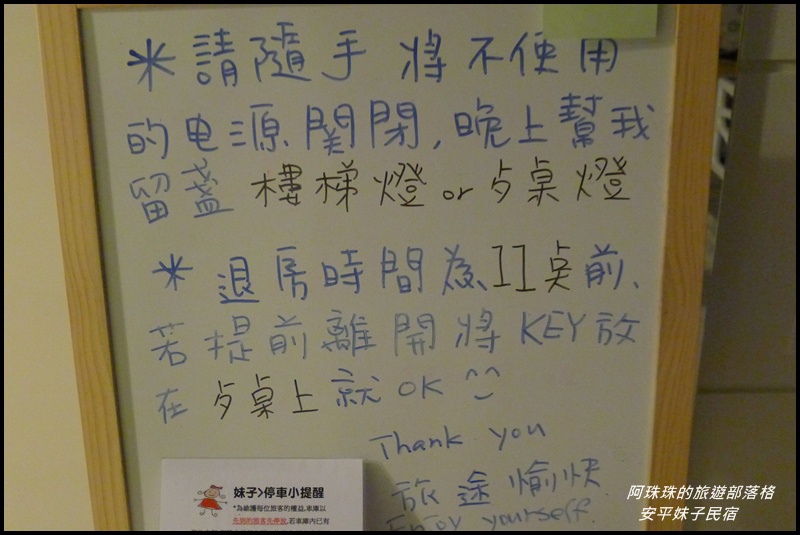 ＊請隨手將不便用
的电源関閉,晚上幫我
留盞樓梯燈or夕桌燈
＊退房時間為11点前、
若提前離開將KEY放
在夕桌上就OK ^^
Thank you
旅途愉快
Enjoy yourself.
妹子>停車小提醒
*為維護每位旅客的權益,車庫以
先到的旅客先停放,若車庫內已有
阿珠珠的旅遊部落格
安平妹子民宿